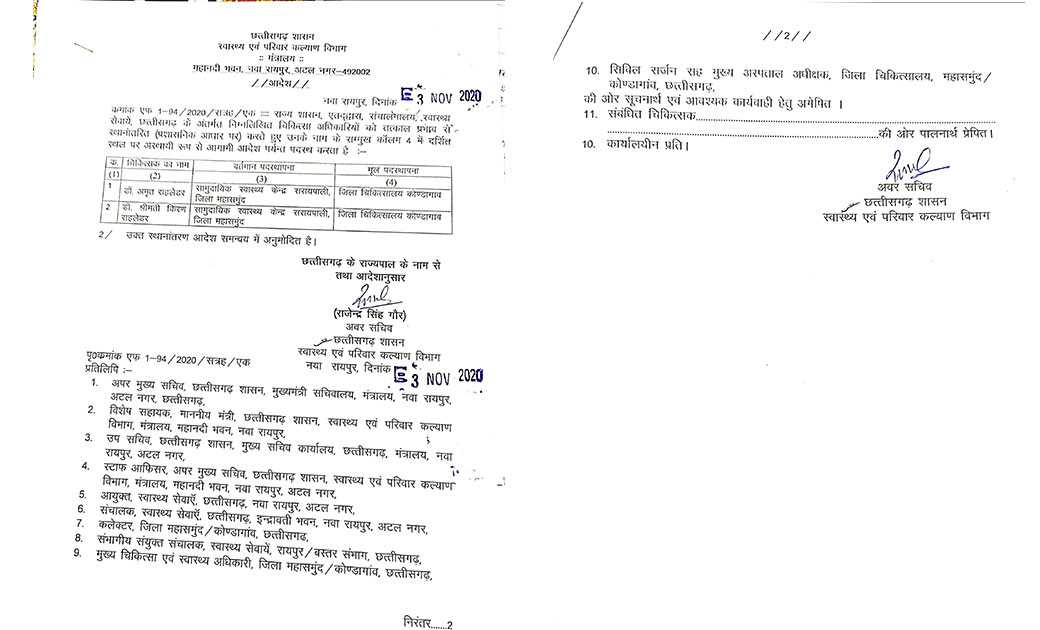 छत्तीसगढ़ शासन
स्वास्थ्य एवं परिवार कल्याण विभाग
:: मंत्रालय ::
महानदी भवन, नवा रायपुर, अटल नगर-492002
//आदेश//
नवा रायपुर, दिनांक 3 NOV 2020
क्रमांक एफ 1-94/2020/सत्रह/एक :::: राज्य शासन, एतद्द्वारा, संचालनालय, स्वास्थ्य
सेवायें, छत्तीसगढ़ के अंतर्गत निम्नलिखित चिकित्सा अधिकारियों को तत्काल प्रभाव से
स्थानांतरित (प्रशासनिक आधार पर) करते हुए उनके नाम के सम्मुख कॉलम 4 में दर्शित
स्थल पर अस्थायी रूप से आगामी आदेश पर्यन्त पदस्थ करता है :-
क्र. चिकित्सक का नाम वर्तमान पदस्थापना मूल पदस्थापना
(1) (2) (3) (4)
1 डॉ. अमृत राहलेडर सामुदायिक स्वास्थ्य केन्द्र सरायपाली, जिला महासमुंद जिला चिकित्सालय कोण्डागांव
2 डॉ. श्रीमती किरण राहलेडर सामुदायिक स्वास्थ्य केन्द्र सरायपाली, जिला महासमुंद जिला चिकित्सालय कोण्डागांव
2/ उक्त स्थानांतरण आदेश समन्वय में अनुमोदित है।
छत्तीसगढ़ के राज्यपाल के नाम से
तथा आदेशानुसार
(राजेन्द्र सिंह गौर)
अवर सचिव
छत्तीसगढ़ शासन
स्वास्थ्य एवं परिवार कल्याण विभाग
पृ0क्रमांक एफ 1-94/2020/सत्रह/एक
नया रायपुर, दिनांक 3 NOV 2020
प्रतिलिपि :-
1. अपर मुख्य सचिव, छत्तीसगढ़ शासन, मुख्यमंत्री सचिवालय, मंत्रालय, नवा रायपुर,
अटल नगर, छत्तीसगढ़,
2. विशेष सहायक, माननीय मंत्री, छत्तीसगढ़ शासन, स्वास्थ्य एवं परिवार कल्याण
विभाग, मंत्रालय, महानदी भवन, नवा रायपुर,
3. उप सचिव, छत्तीसगढ़ शासन, मुख्य सचिव कार्यालय, छत्तीसगढ़, मंत्रालय, नवा
रायपुर, अटल नगर,
4. स्टाफ आफिसर, अपर मुख्य सचिव, छत्तीसगढ़ शासन, स्वास्थ्य एवं परिवार कल्याण
विभाग, मंत्रालय, महानदी भवन, नवा रायपुर, अटल नगर,
5. आयुक्त, स्वास्थ्य सेवाएँ, छत्तीसगढ़, नवा रायपुर, अटल नगर,
6. संचालक, स्वास्थ्य सेवाएँ, छत्तीसगढ़, इन्द्रावती भवन, नवा रायपुर, अटल नगर,
7. कलेक्टर, जिला महासमुंद/कोण्डागांव, छत्तीसगढ,
8. संभागीय संयुक्त संचालक, स्वास्थ्य सेवायें, रायपुर/बस्तर संभाग, छत्तीसगढ़,
9. मुख्य चिकित्सा एवं स्वास्थ्य अधिकारी, जिला महासमुंद/कोण्डागांव, छत्तीसगढ़,
निरंतर......2
//2//
10. सिविल सर्जन सह मुख्य अस्पताल अधीक्षक, जिला चिकित्सालय, महासमुंद/
कोण्डागांव, छत्तीसगढ़,
की ओर सूचनार्थ एवं आवश्यक कार्यवाही हेतु अग्रेषित ।
11. संबंधित चिकित्सक......
......की ओर पालनार्थ प्रेषित।
10. कार्यालयीन प्रति।
अवर सचिव
छत्तीसगढ़ शासन
स्वास्थ्य एवं परिवार कल्याण विभाग